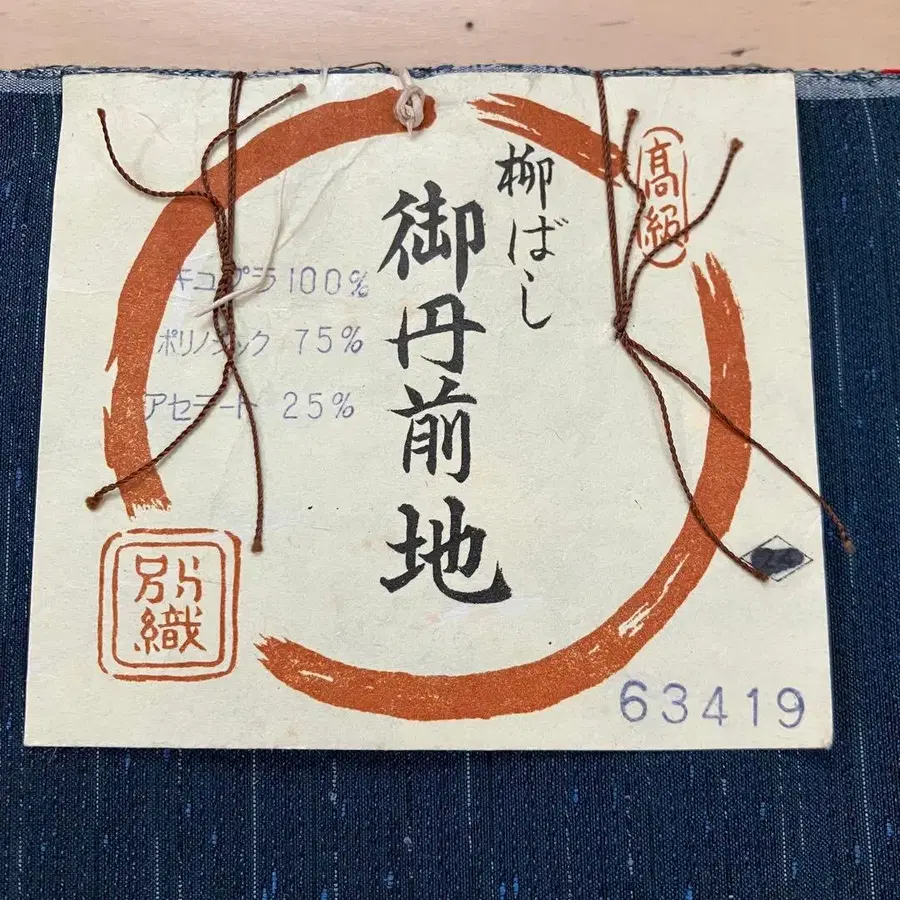 高級
柳ばし
御丹前地
キュプラ100%
ポリノジック 75%
アセテート 25%
別織
63419